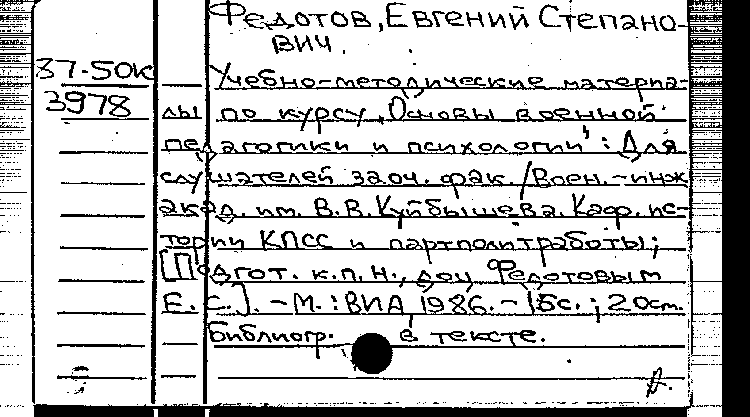 Федотов, Евгений Степано-
вич.
87-50к Учебно-методические материа-
3978 лы по курсу „Основы военной
педагогики и психологии": Для
слушателей заоч. фак. / Воен.-инж
акад. им. В.В. Куйбышева. Каф. ис-
тории КПСС и партполитработы;
[Подгот. к.п.н., доц Федотовым
Е. С.]. - М.: ВИА, 1986. - 15с.; 20см.
Библиогр. в тексте.